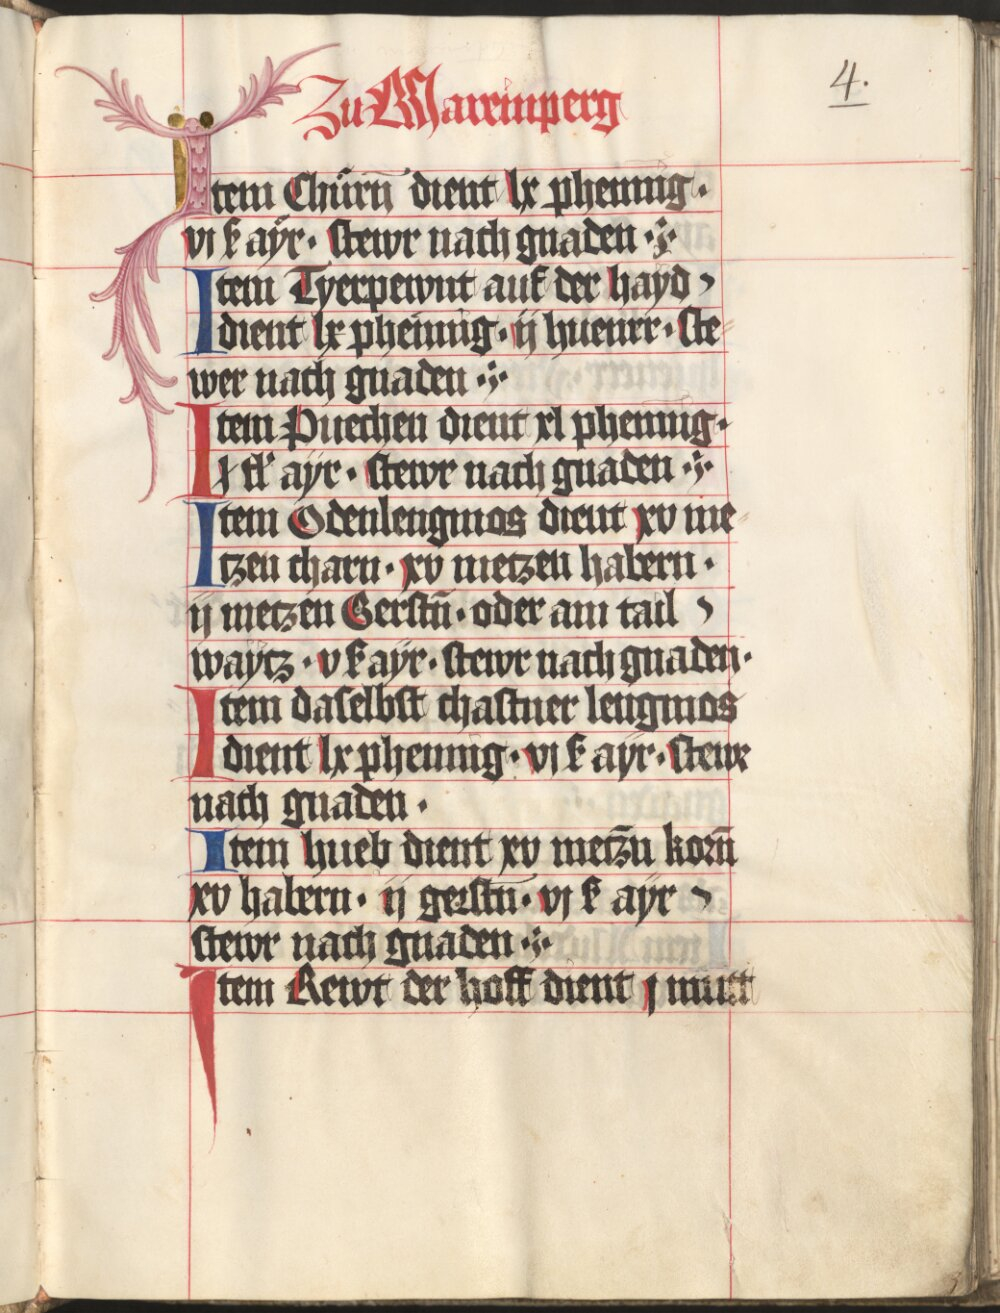 4.
Zu Mareinperg
Item Chürn̄ dient lx phening.
vi k ayr. stewr nach gnaden
Item Tyerpewnt auf der hayd
dient lx phening. ij huener. ste
wer nach gnaden
Item Puechen dient xl phening.
ayr. stewr nach gnaden
Item Odenlengmos dient xv me
tzen charn. xv metzen habern.
ij metzen Gerstn̄. oder am tail
waytz. v k ayr. stewr nach gnaden.
Item daselbst chastner lengmos
dient lx phening. vi k ayr. stewr
nach gnaden.
Item hueb dient xv metz̄n korn̄
xv habern. ij gerstn̄. vj k ayr
stewr nach gnaden
Item Rewt der hoff dient j mutt